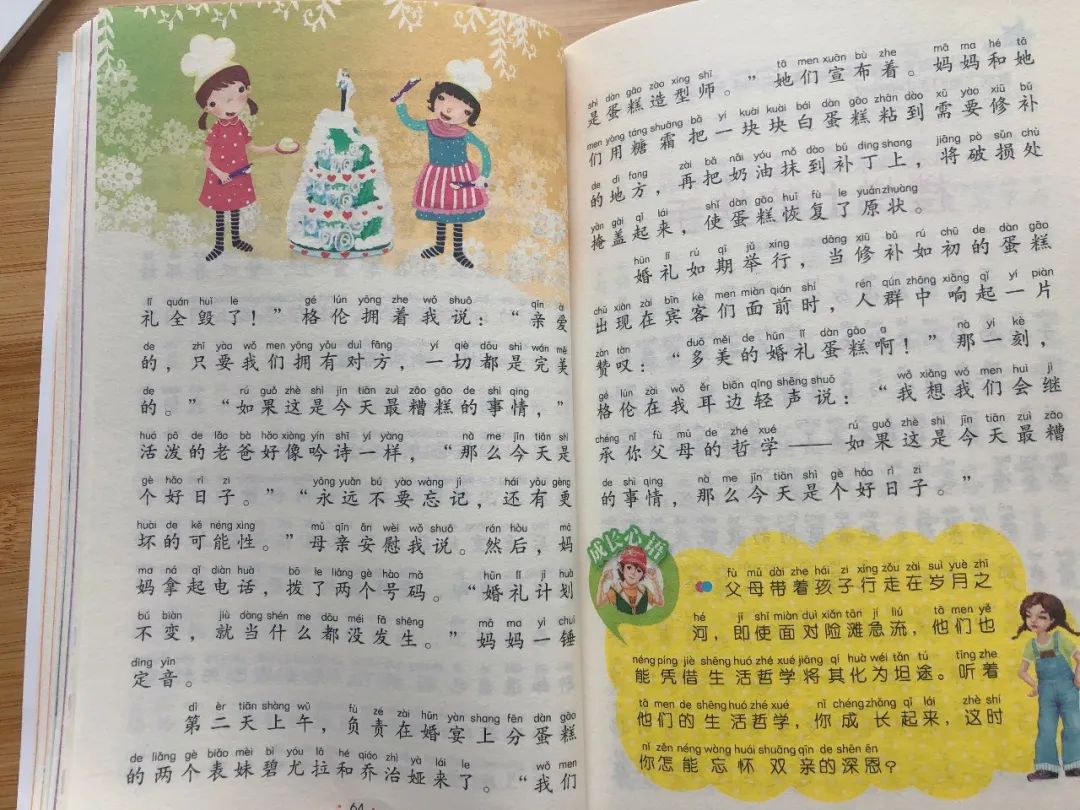 lǐ quán huǐ le gé lún yōng zhe wǒ shuō qīn à
礼全毁了！”格伦拥着我说：“亲爱
de zhǐ yào wǒ men yōng yǒu duì fāng yí qiè dōu shì wán měi
的，只要我们拥有对方，一切都是完美
de rú guǒ zhè shì jīn tiān zuì zāo gāo de shì qing
的。”“如果这是今天最糟糕的事情，”
huó pō de lǎo bà hǎo xiàng yín shī yí yàng nà me jīn tiān shì
活泼的老爸好像吟诗一样，“那么今天是
gè hǎo rì zi yǒng yuǎn bú yào wàng jì hái yǒu gèng
个好日子。”“永远不要忘记，还有更
huài de kě néng xìng mǔ qīn ān wèi wǒ shuō rán hòu mā
坏的可能性。”母亲安慰我说。然后，妈
ma ná qǐ diàn huà bō le liǎng gè hào mǎ hūn lǐ jì huà
妈拿起电话，拨了两个号码。“婚礼计划
bú biàn jiù dàng shén me dōu méi fā shēng mā ma yì chuí
不变，就当什么都没发生。”妈妈一锤
dìng yīn
定音。
dì èr tiān shàng wǔ fù zé zài hūn yàn shang fēn dàn gāo
第二天上午，负责在婚宴上分蛋糕
de liǎng gè biǎo mèi bì yóu lā hé qiáo zhì yà lái le wǒ men
的两个表妹碧尤拉和乔治娅来了。“我们
64
shì dàn gāo zào xíng shī tā men xuān bù zhe mā ma hé tā
是蛋糕造型师。”她们宣布着。妈妈和她
men yòng táng shuāng bǎ yí kuài kuài bái dàn gāo zhān dào xū yào xiū bǔ
们用糖霜把一块块白蛋糕粘到需要修补
de dì fang zài bǎ nǎi yóu mǒ dào bǔ ding shang jiāng pò sǔn chù
的地方，再把奶油抹到补丁上，将破损处
yǎn gài qǐ lái shǐ dàn gāo huī fù le yuán zhuàng
掩盖起来，使蛋糕恢复了原状。
hūn lǐ rú qī jǔ xíng dāng xiū bǔ rú chū de dàn gāo
婚礼如期举行，当修补如初的蛋糕
chū xiàn zài bīn kè men miàn qián shí rén qún zhōng xiǎng qǐ yí piàn
出现在宾客们面前时，人群中响起一片
zàn tàn duō měi de hūn lǐ dàn gāo a nà yí kè
赞叹：“多美的婚礼蛋糕啊！”那一刻，
gé lún zài wǒ ěr biān qīng shēng shuō wǒ xiǎng wǒ men huì jì
格伦在我耳边轻声说：“我想我们会继
chéng nǐ fù mǔ de zhé xué rú guǒ zhè shì jīn tiān zuì zāo
承你父母的哲学——如果这是今天最糟
de shì qing nà me jīn tiān shì gè hǎo rì zi
的事情，那么今天是个好日子。”
成长心语
fù mǔ dài zhe hái zi xíng zǒu zài suì yuè zhī
父母带着孩子行走在岁月之
hé jí shǐ miàn duì xiǎn tān jí liú tā men yě
河，即使面对险滩急流，他们也
néng píng jiè shēng huó zhé xué jiāng qí huà wéi tǎn tú tīng zhe
能凭借生活哲学将其化为坦途。听着
tā men de shēng huó zhé xué nǐ chéng zhǎng qǐ lái zhè shí
他们的生活哲学，你成长起来，这时
nǐ zěn néng wàng huái shuāng qīn de shēn ēn
你怎能忘怀双亲的深恩？